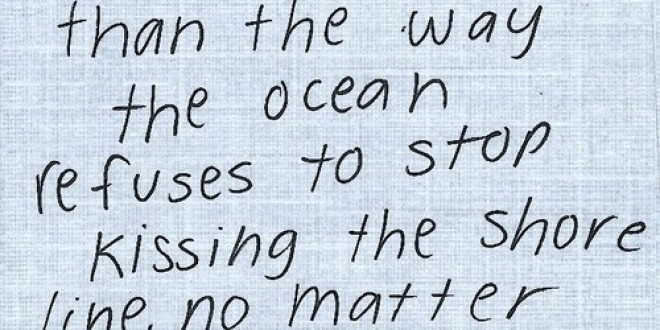 than the way
the ocean
refuses to stop
kissing the shore
line, no matter